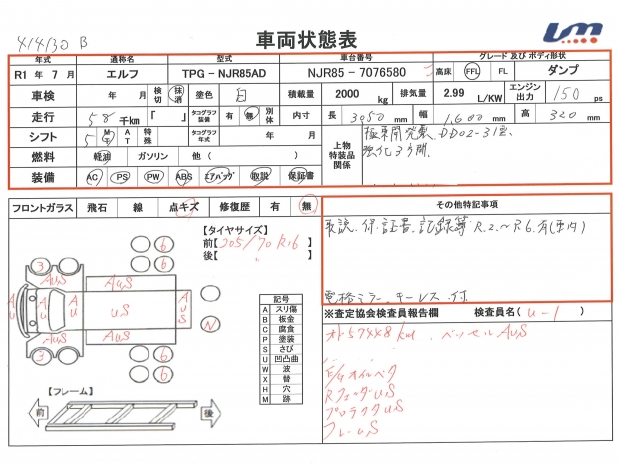 41430 B
車両状態表
年式 通称名 型式 車台番号 グレード 及び ボディ形状
R1 年 7 月 エルフ TPG - NJR85AD NJR85 - 7076580 高床 FFL FL ダンプ
車検 年 月 検切 抹消 塗色 白 積載量 2000 kg 排気量 2.99 L/KW エンジン出力 150 ps
走行 58 千km 「 」 タコグラフ装備 有 無 別体 内寸 長 3050 mm 幅 1,600 mm 高 320 mm
シフト 5 MT AT 特殊 タコグラフ年式 年 月 上物特装品関係 極東開発製 DD02-31型
燃料 軽油 ガソリン 他 ( ) 強化3方開
装備 AC PS PW ABS エアバッグ 取説 保証書
フロントガラス 飛石 線 点キズ 修復歴 有 無
その他特記事項
取説、保証書、記録簿 R.2.~R6.有(車内)
電格ミラー キーレス 付
【タイヤサイズ】
前【205/70R16】
後【 〃 】
6 6
3
AUS AUS
AU AU AU US AUS
AUS AUS
3 6 6
N
記号
A スリ傷
B 板金
C 腐食
P 塗装
S さび
U 凹凸曲
W 波
X 替
H 穴
M 跡
【フレーム】
前 後
※査定協会検査員報告欄 検査員名( u-1 )
オド57448km . ベッセルAUS
E/Gオイルベタ
RフェンダUS
プロテクタUS
フレームS